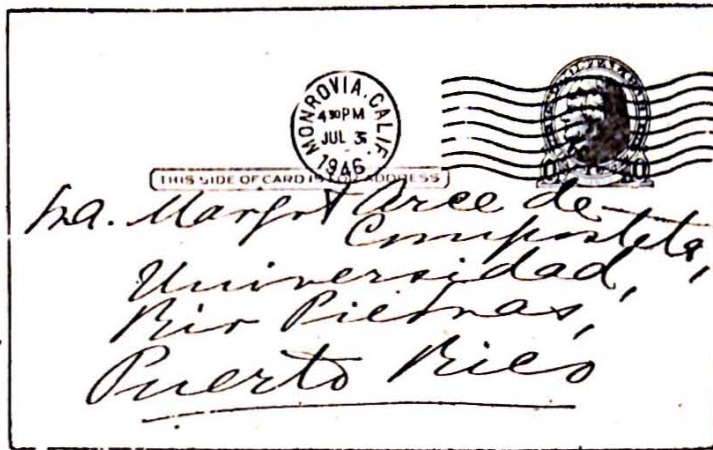 MONROVIA, CALIF.
4 30 PM
JUL 3
1946
THIS SIDE OF CARD IS FOR ADDRESS
Sra. Margot Arce de
Compostela,
Universidad,
Rio Piedras,
Puerto Rico